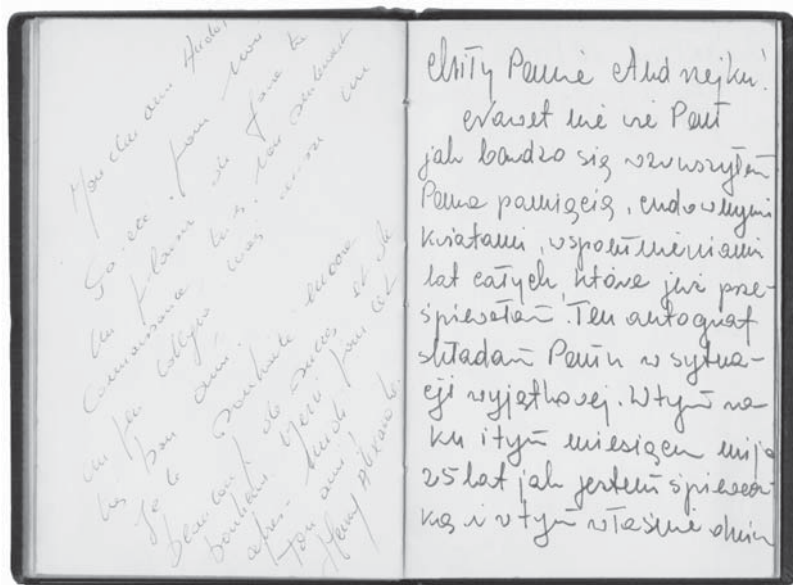 Mon cher ami
pour moi
un plaisir de faire ta
connaissance
un peu
bon ami.
Je te souhaite encore
beaucoup de succès et de
bonheur. Merci pour cet
après-midi
Ton ami,
Henry
Miły Panie Andrzejku!
Nawet nie wie Pan
jak bardzo się wzruszyłam
Pana pamięcią, cudownymi
kwiatami, wspomnieniami
lat całych które już prze-
śpiewałam! Ten autograf
składam Panu w sytua-
cji wyjątkowej. W tym ro-
ku i tym miesiącu mija
25 lat jak jestem śpiewacz-
ką i w tym właśnie dniu